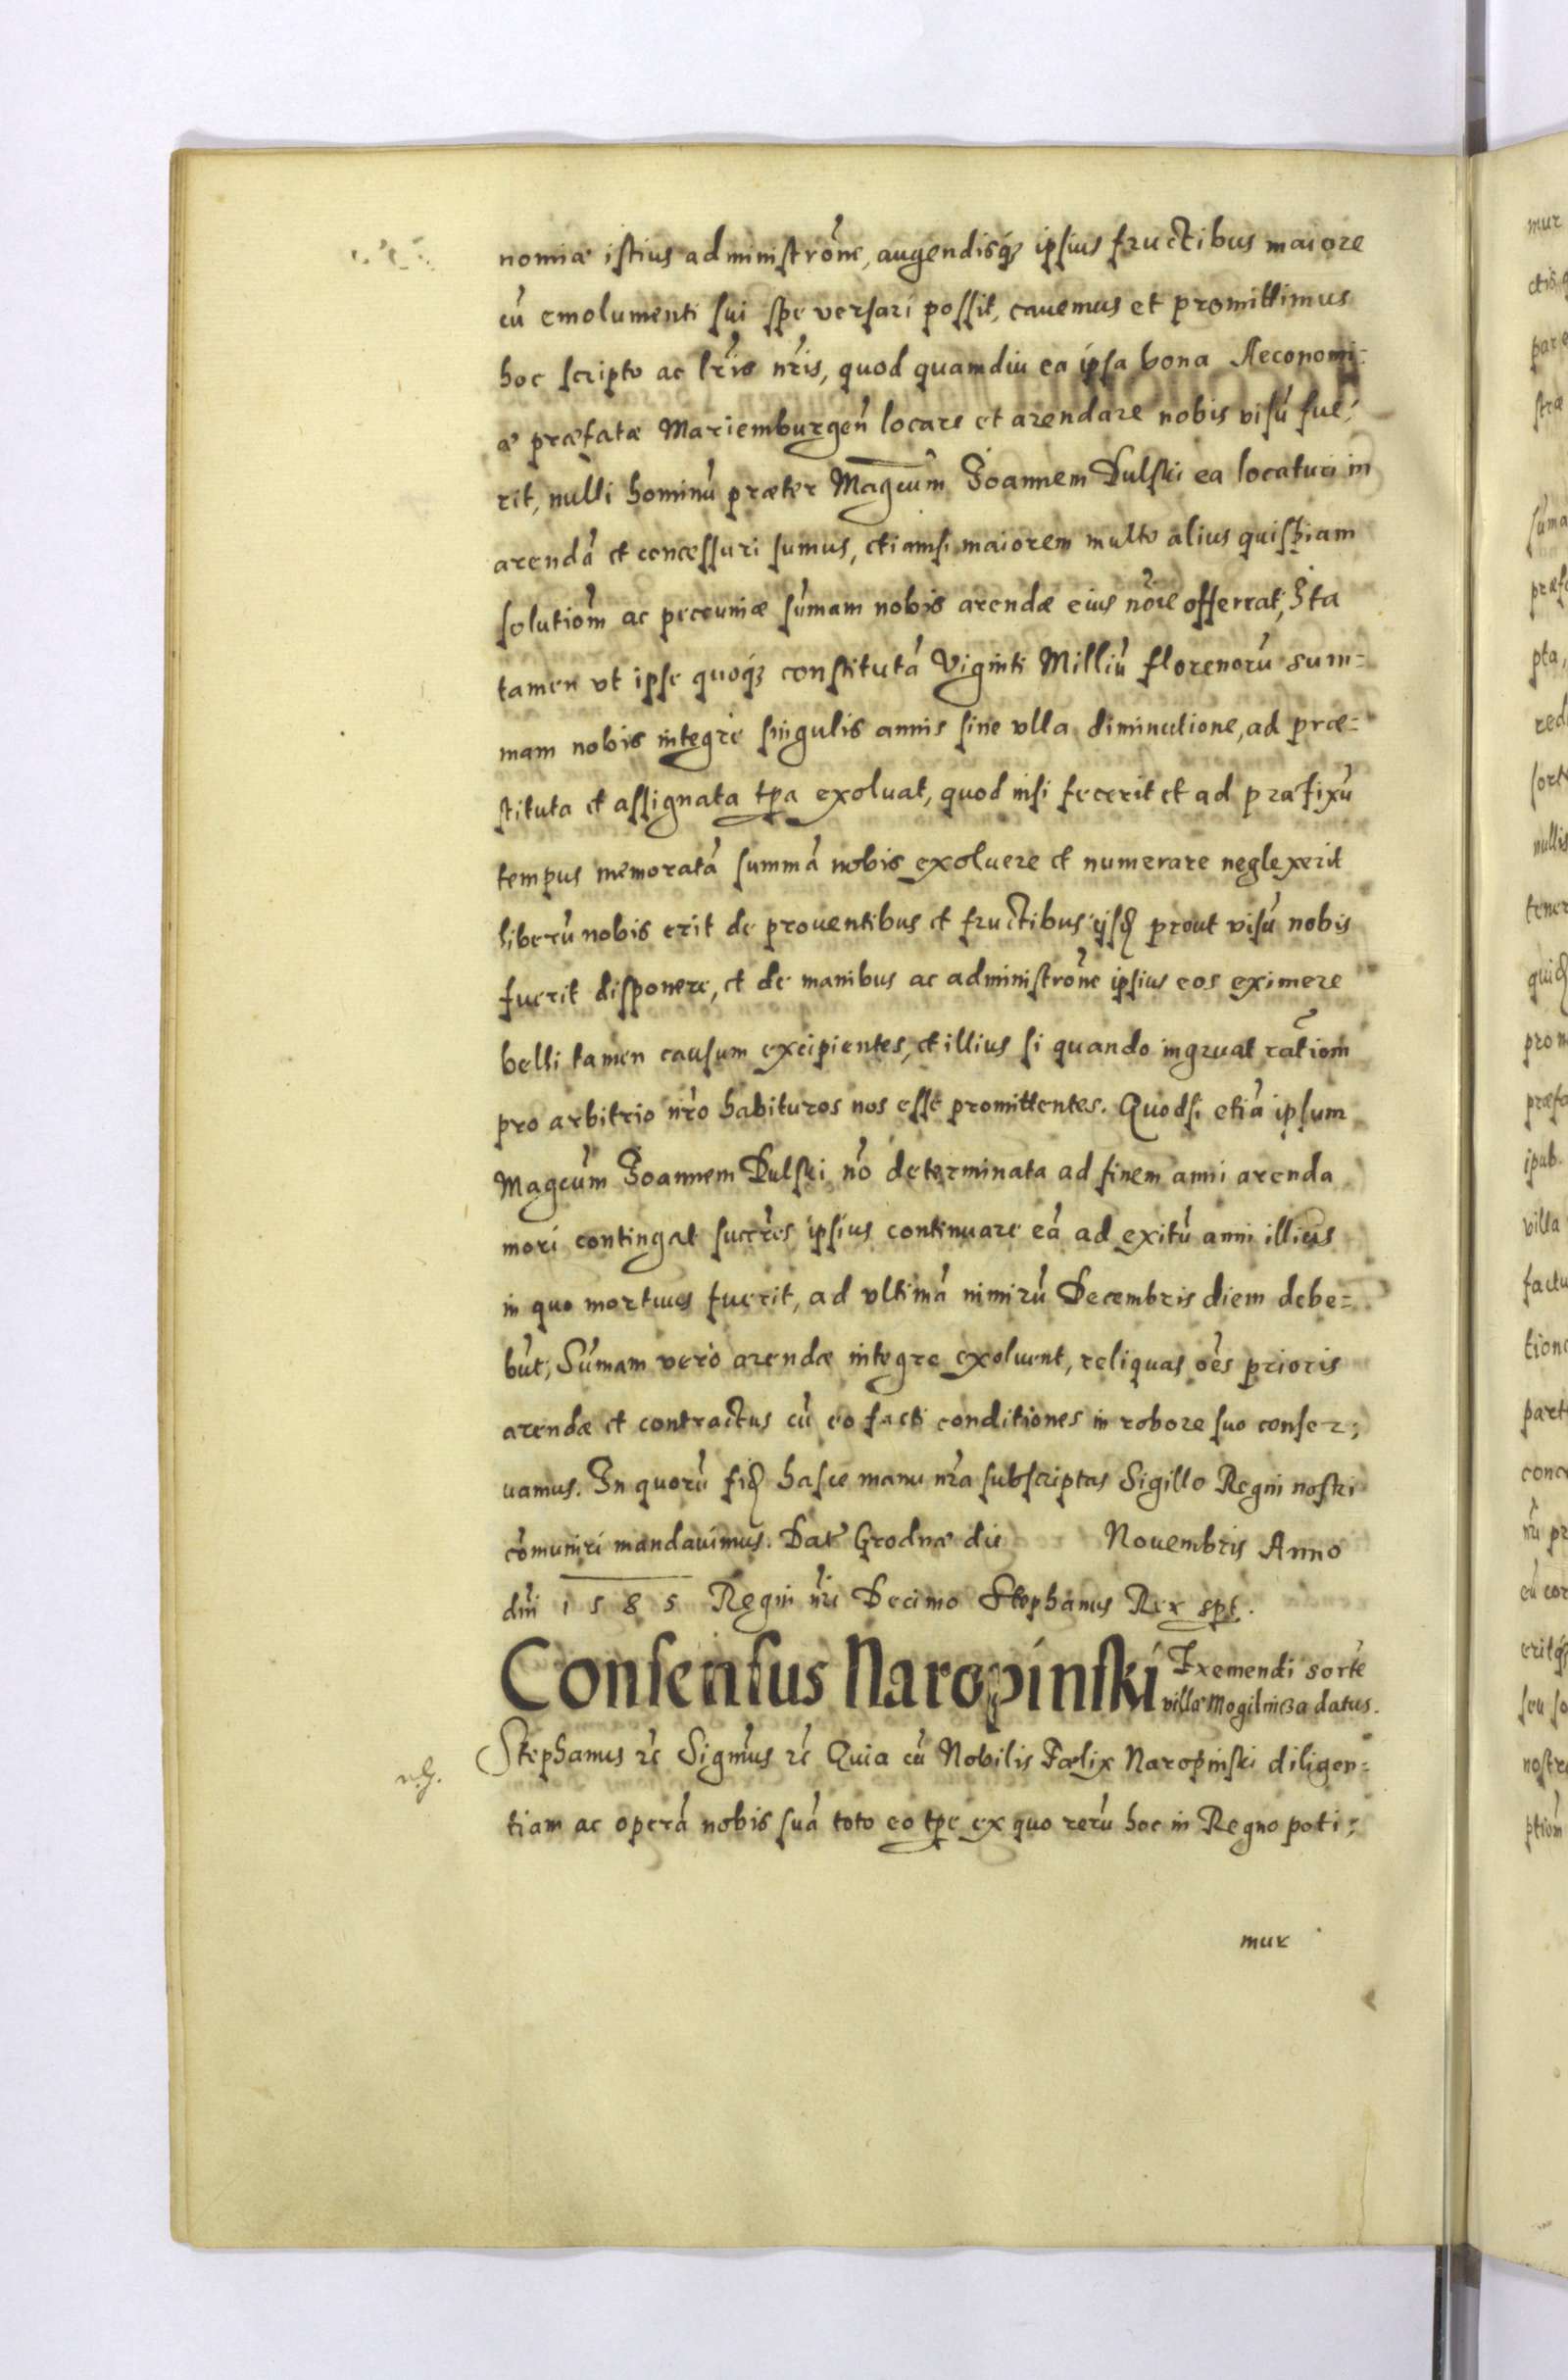 nomiæ istius administrõne, augendisq₃ ipsius fructibus maiore
cũ emolumenti sui spe versari possit, cavemus et promittimus
hoc scripto ac lr̃is nr̃is, quod quamdiu ea ipsa bona Aeconomi=
æ præfatæ Mariemburgeñ locare et arendare nobis visũ fue=
rit, nulli hominũ præter Magcum̃ Joannem Dulski ea locaturi in
arendã et concessuri sumus, etiamsi maiorem multo alius quispiam
solutiom̃ ac pecuniæ sũmam nobis arendæ eius nõie offerrat, Ita
tamen vt ipse quoq₃ constitutã Viginti Milliũ florenorũ sum=
mam nobis integre singulis annis sine vlla diminutione, ad præ=
stituta et assignata tp̃a exoluat, quod nisi fecerit et ad præfixũ
tempus memoratã summã nobis exoluere et numerare neglexerit
liberũ nobis erit de proventibus et fructibus ijsd₃ prout visũ nobis
fuerit disponere, et de manibus ac administrõne ipsius eos eximere
belli tamen causum excipientes, et illius si quando ingruat ratiom̃
pro arbitrio nr̃o habituros nos esse promittentes. Quodsi etiã ipsum
Magcum̃ Joannem Dulski nõ determinata ad finem anni arenda
mori contingat succr̃es ipsius continuare eã ad exitũ anni illius
in quo mortuus fuerit, ad vltimã nimirũ Decembris diem debe=
bũt, Sũmam verò arendæ integre exoluent, reliquas oẽs prioris
arendæ et contractus cũ eo facti conditiones in robore suo conser=
uamus. In quorũ fid₃ hasce manu nr̃a subscriptas Sigillo Regni nostri
cõmuniri mandauimus. Dat̃ Grodnæ die Nouembris Anno
dñi 1585 Regni nr̃i Decimo Stephanus Rex spt̃.
Consensus Naropinski Exemendi sortẽ
villæ Mogilnicza datus.
Stephanus rc̃ Sigm̃us rc̃ Quia cũ Nobilis Fælix Naropinski diligen=
tiam ac operã nobis suã toto eo tp̃e ex quo rerũ hoc in Regno poti=
mur